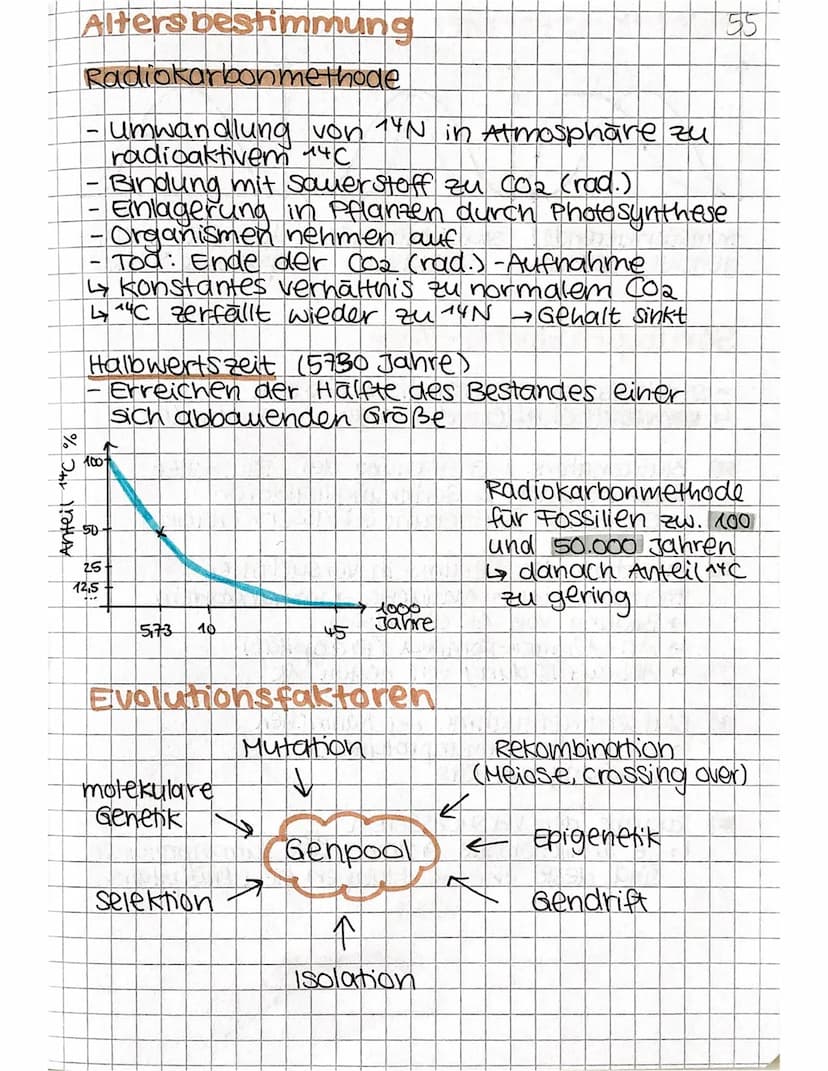 Altersbestimmung
55
Radiokarbonmethode
- Umwandlung von ¹⁴N in Atmosphäre zu
radioaktivem ¹⁴C
- Bindung mit Sauerstoff zu CO2 (rad.)
- Einlagerung in Pflanzen durch Photosynthese
- Organismen nehmen auf
- Tod: Ende der CO2 (rad.)-Aufnahme
↳ konstantes Verhältnis zu normalem CO2
↳ ¹⁴C zerfällt wieder zu ¹⁴N → Gehalt sinkt
Halbwertszeit (5730 Jahre)
- Erreichen der Hälfte des Bestandes einer
sich abbauenden Größe
Anteil ¹⁴C %
100
50
25
12,5
...
5,73 10 45
1000
Jahre
Radiokarbonmethode
für Fossilien zw. 100
und 50.000 Jahren
↳ danach Anteil ¹⁴C
zu gering
Evolutionsfaktoren
Mutation
Rekombination
(Meiose, crossing over)
molekulare
Genetik
Genpool
Epigenetik
Selektion
Gendrift
Isolation